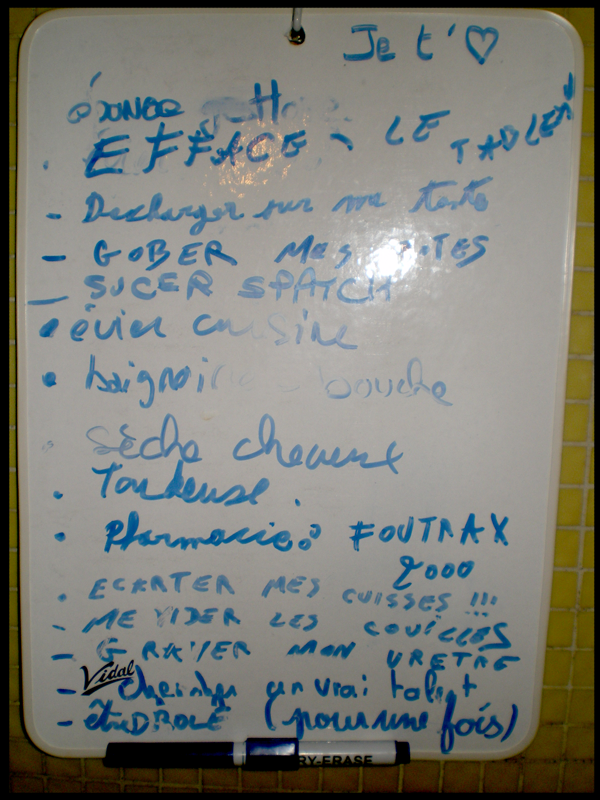 Je t'♡
éponge
EFFACE LE TABLEAU
- Decharger sur ma tante
- GOBER MES POTES
- SUCER SPATCH
• évier cuisine
• baignoire bouche
• sèche cheveux
• Tondeuse.
• Pharmacie : FOUTRAX
2000
• ECARTER MES CUISSES !!!
- ME VIDER LES COUILLES
- GRAYER MON URETRE
- un vrai talent
- être DROLE (pour une fois)
Vidal
DRY-ERASE